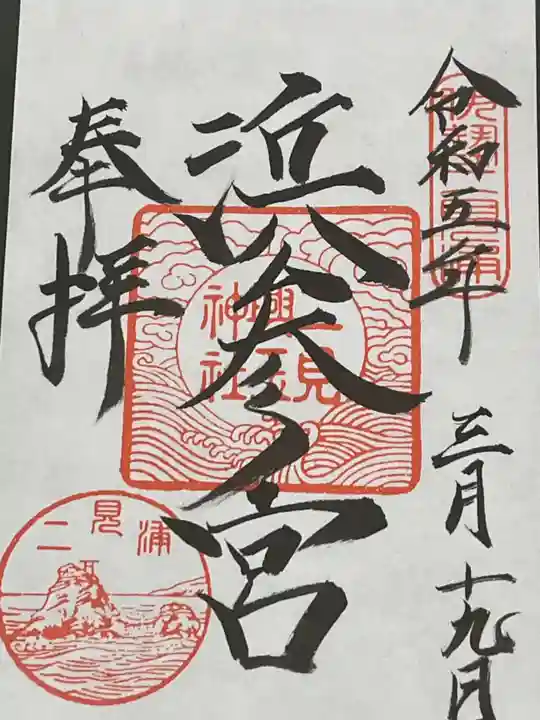 伊勢二見浦
令和五年
三月十九日
浜参宮
二見
興玉
神社
奉拝
二見浦